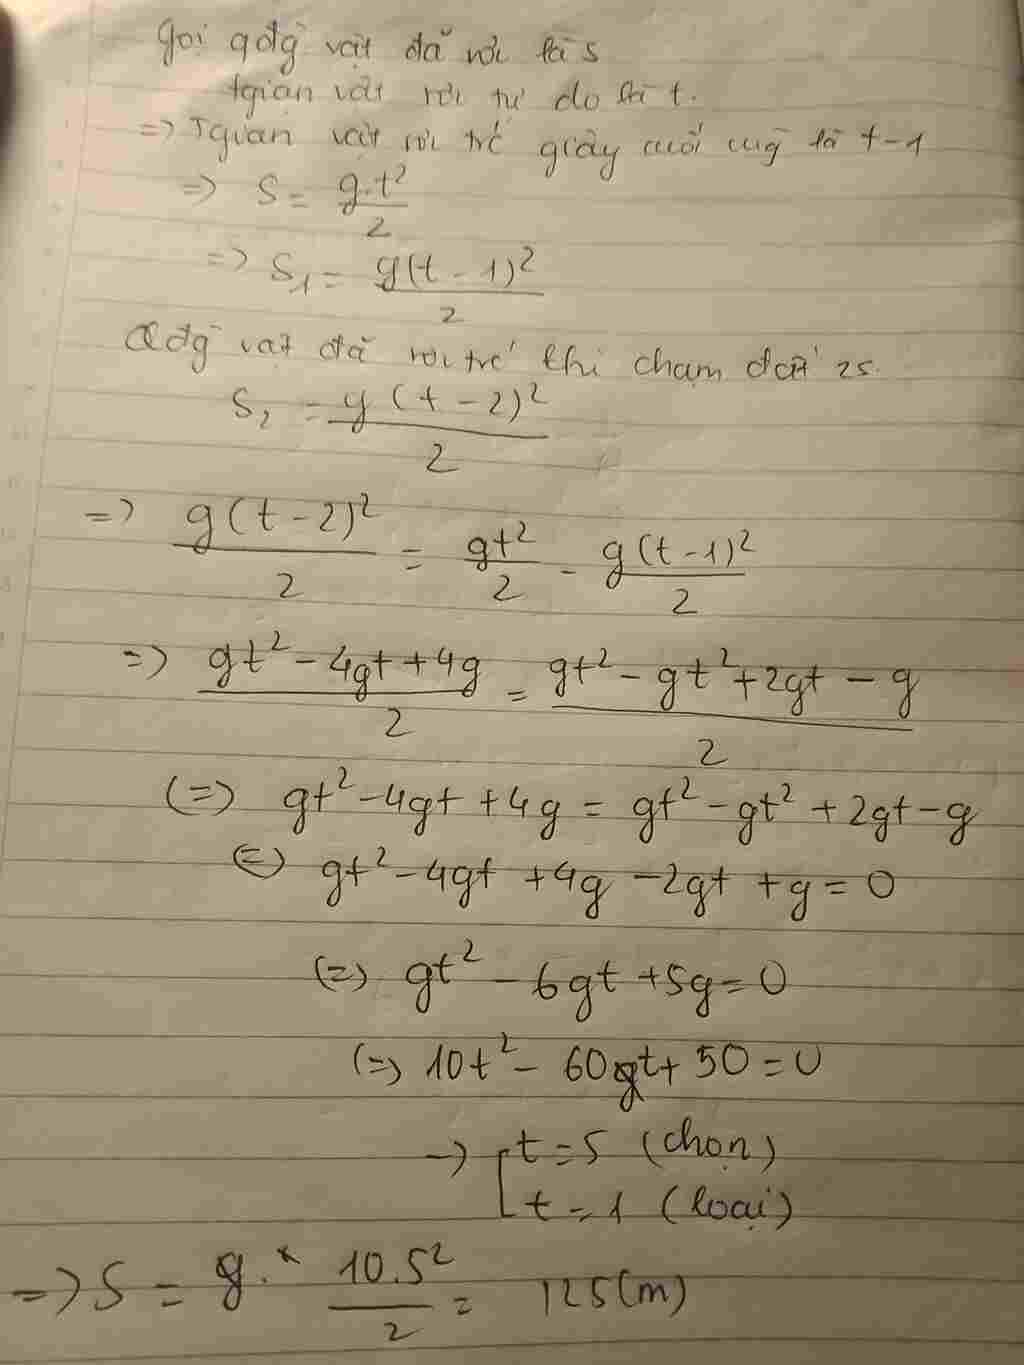 gọi qđg vật đã rơi là s
tgian vật rơi tự do là t.
=> Tgian vật rơi trc giây cuối cùg là t-1
=> S = g.t²/2
=> S₁ = g(t - 1)²/2
Qđg vật đã rơi trc khi chạm đất 2s.
S₂ = g(t - 2)²/2
=> g(t - 2)²/2 = gt²/2 - g(t - 1)²/2
=> gt² - 4gt + 4g/2 = gt² - gt² + 2gt - g/2
(=) gt² - 4gt + 4g = gt² - gt² + 2gt - g
(=) gt² - 4gt + 4g - 2gt + g = 0
(=) gt² - 6gt + 5g = 0
(=) 10t² - 60gt + 50 = 0
-> [ t = 5 (chọn)
t = 1 (loại)
=> S = g. 10.5²/2 = 125(m)